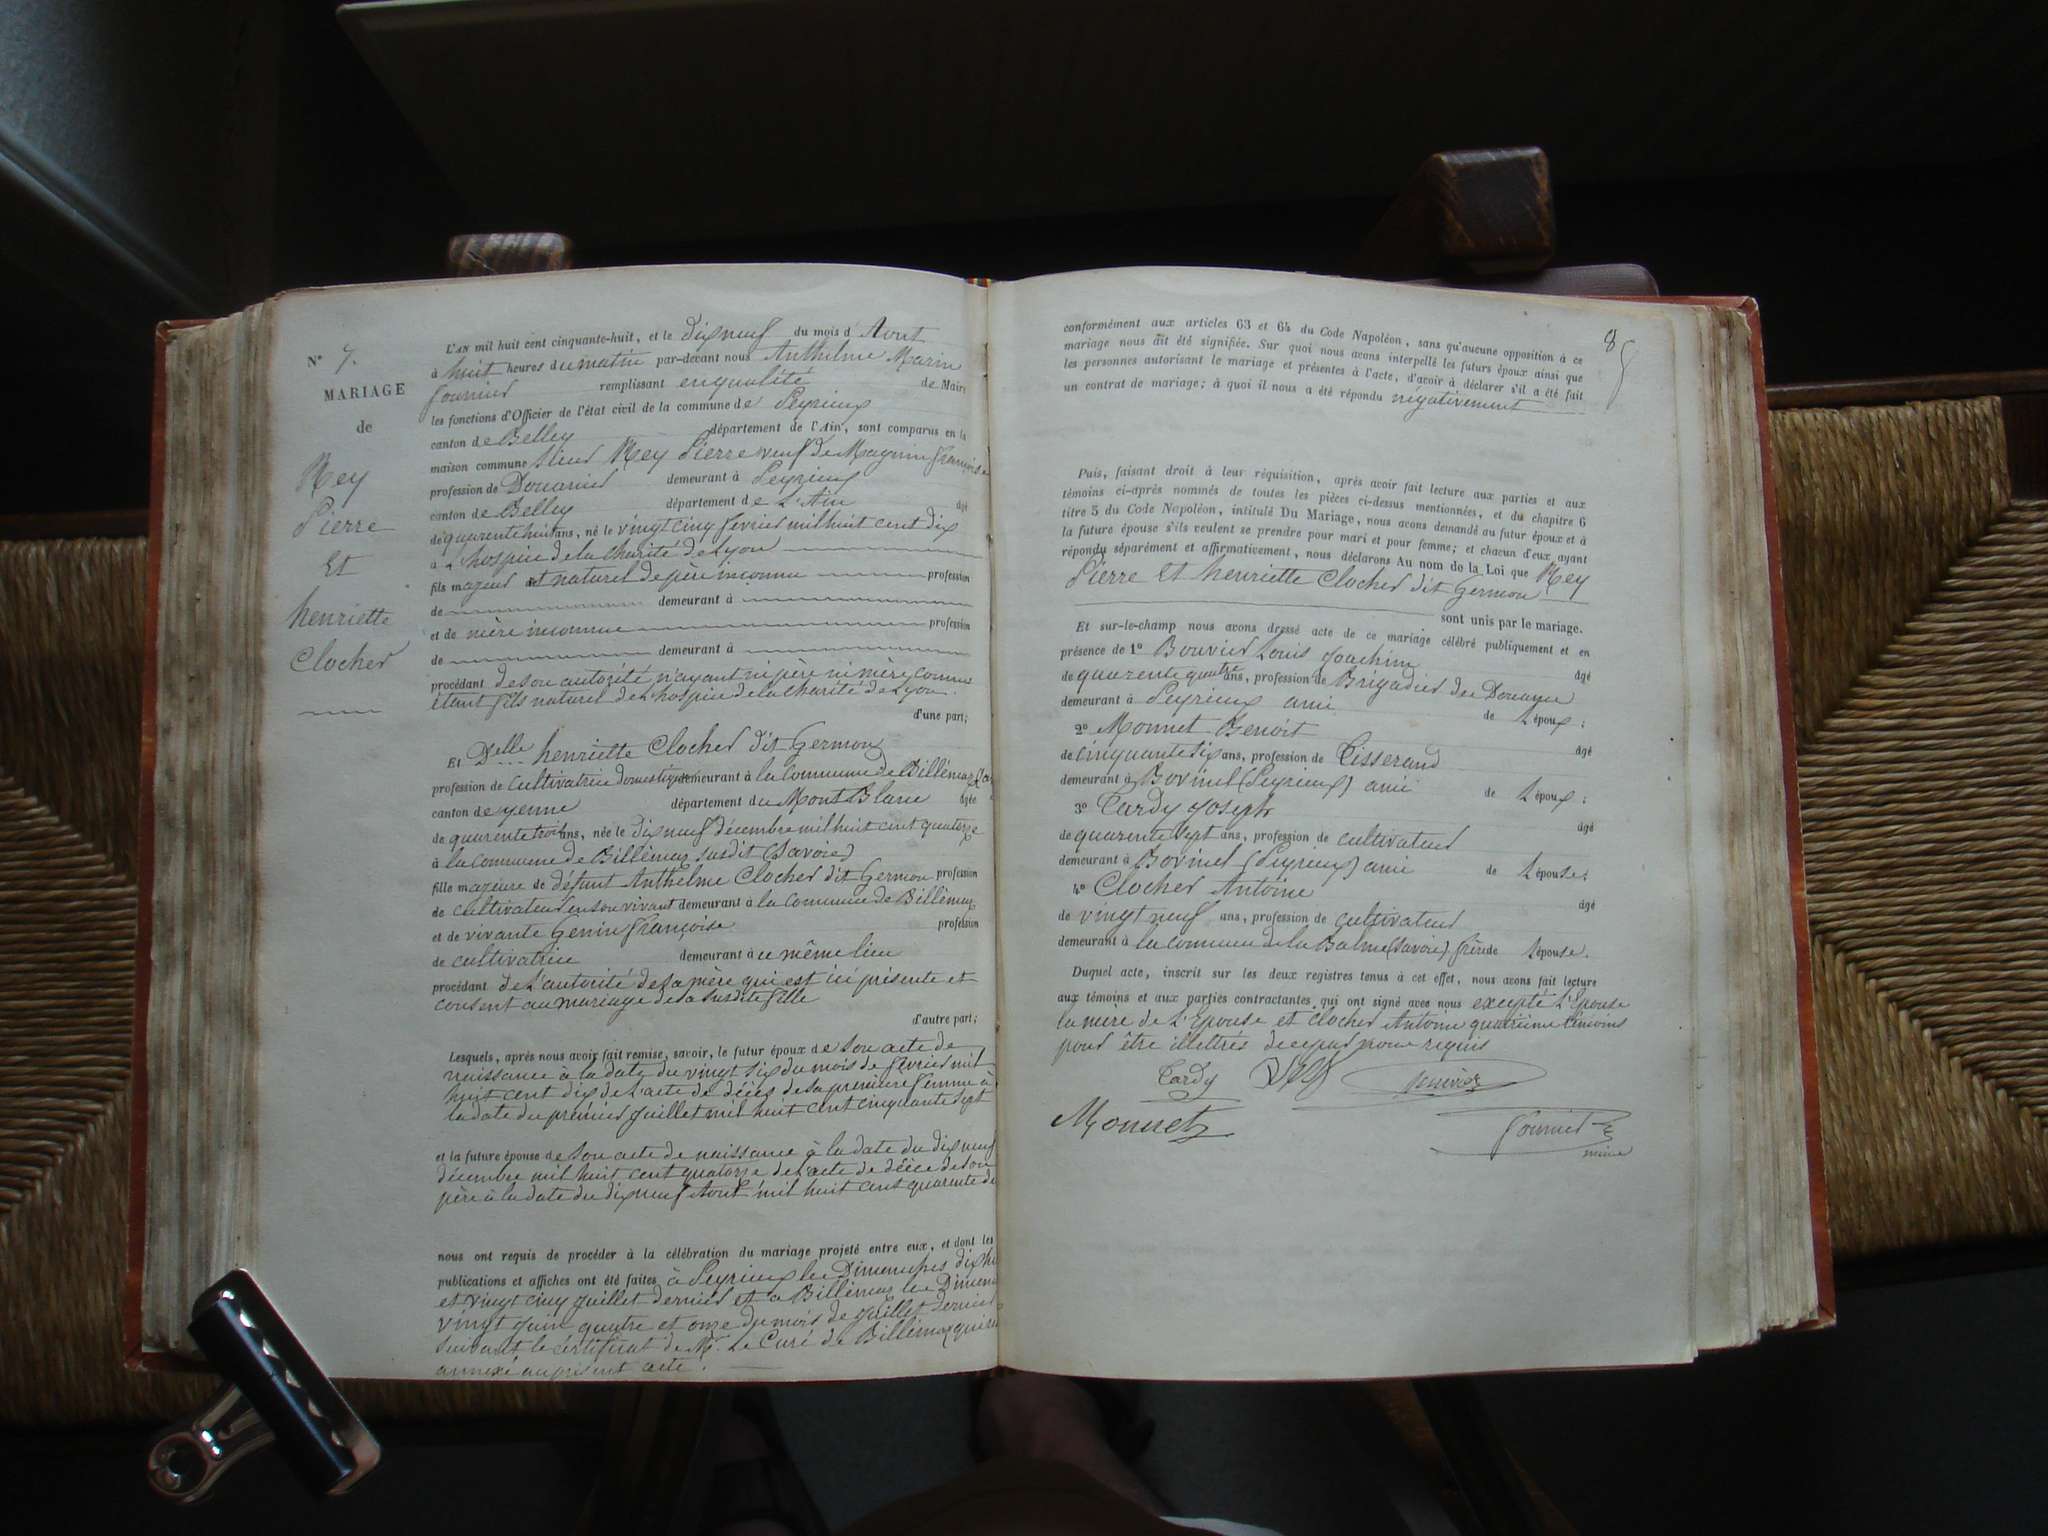 N° 7.
MARIAGE
de
Rey
Pierre
Et
henriette
Clocher
L'AN mil huit cent cinquante-huit, et le dixneuf du mois d'Aout
à huit heures du matin par-devant nous Anthelme Marin
fournier remplissant en qualité de Maire
les fonctions d'Officier de l'état civil de la commune de Peyrieux
canton de Belley département de l'Ain, sont comparus en la
maison commune sieur Rey Pierre veuf de Magnin françoise
profession de Douanier demeurant à Peyrieux
canton de Belley département de L'Ain âgé
de quarente huit ans, né le vingt cinq fevrier mil huit cent dix
à L'hospice de la Charité de Lyon
fils majeur et naturel de père inconnu profession
de demeurant à
et de mère inconnue profession
de demeurant à
procédant de son autorité n'ayant ni père ni mère connus
étant fils naturel de L'hospice de la Charité de Lyon.
d'une part;
Et Delle henriette Clocher dit Germon
profession de cultivatrice domestique demeurant à la Commune de Billièmaz
canton de yenne département du Mont Blanc âgée
de quarente trois ans, née le dixneuf décembre mil huit cent quatorze
à la commune de Billièmaz susdit (Savoie)
fille majeure de défunt Anthelme Clocher dit Germon profession
de cultivateur en son vivant demeurant à la Commune de Billièmaz
et de vivante Genin françoise profession
de cultivatrice demeurant à ce même lieu
procédant de L'autorité de sa mère qui est ici présente et
consent au mariage de sa susdite fille
d'autre part;
Lesquels, après nous avoir fait remise, savoir, le futur époux de son acte de
naissance à la date du vingt six du mois de février mil
huit cent dix de L'acte de décès de sa première femme à
la date du premier juillet mil huit cent cinquante sept
et la future épouse de son acte de naissance à la date du dix neuf
décembre mil huit cent quatorze de L'acte de décès de son
père à la date du dixneuf Aout mil huit cent quarente
nous ont requis de procéder à la célébration du mariage projeté entre eux, et dont les
publications et affiches ont été faites à Peyrieux les Dimanches
et vingt cinq juillet dernier et a Billièmaz les
vingt juin quatre et onze du mois de juillet dernier
suivant le certificat de Mr. Le Curé de Billièmaz
annexé au présent acte.
8
conformément aux articles 63 et 64 du Code Napoléon, sans qu'aucune opposition à ce
mariage nous ait été signifiée. Sur quoi nous avons interpellé les futurs époux ainsi que
les personnes autorisant le mariage et présentes à l'acte, d'avoir à déclarer s'il a été fait
un contrat de mariage; à quoi il nous a été répondu négativement
Puis, faisant droit à leur réquisition, après avoir fait lecture aux parties et aux
témoins ci-après nommés de toutes les pièces ci-dessus mentionnées, et du chapitre 6
titre 5 du Code Napoléon, intitulé Du Mariage, nous avons demandé au futur époux et à
la future épouse s'ils veulent se prendre pour mari et pour femme; et chacun d'eux ayant
répondu séparément et affirmativement, nous déclarons Au nom de la Loi que Rey
Pierre Et henriette Clocher dit Germon
sont unis par le mariage.
Et sur-le-champ nous avons dressé acte de ce mariage célébré publiquement et en
présence de 1° Bouvier Louis Joachim âgé
de quarente quatre ans, profession de Brigadier des Douanes
demeurant à Peyrieux ami de L'époux;
2° Monnet Benoit âgé
de cinquante six ans, profession de Tisserand
demeurant à Bovinel (Peyrieux) ami de L'époux;
3° Tardy Joseph âgé
de quarente sept ans, profession de cultivateur
demeurant à Bovinel (Peyrieux) ami de L'épouse;
4° Clocher Antoine âgé
de vingt neuf ans, profession de cultivateur
demeurant à la commune de la Balme (Savoie) frère de L'épouse.
Duquel acte, inscrit sur les deux registres tenus à cet effet, nous avons fait lecture
aux témoins et aux parties contractantes qui ont signé avec nous excepté L'Epouse
la mère de L'Epouse et Clocher Antoine quatrième témoins
pour être illettrés de ce par nous requis
Tardy Rey Bouvier
Monnet
fournier
maire